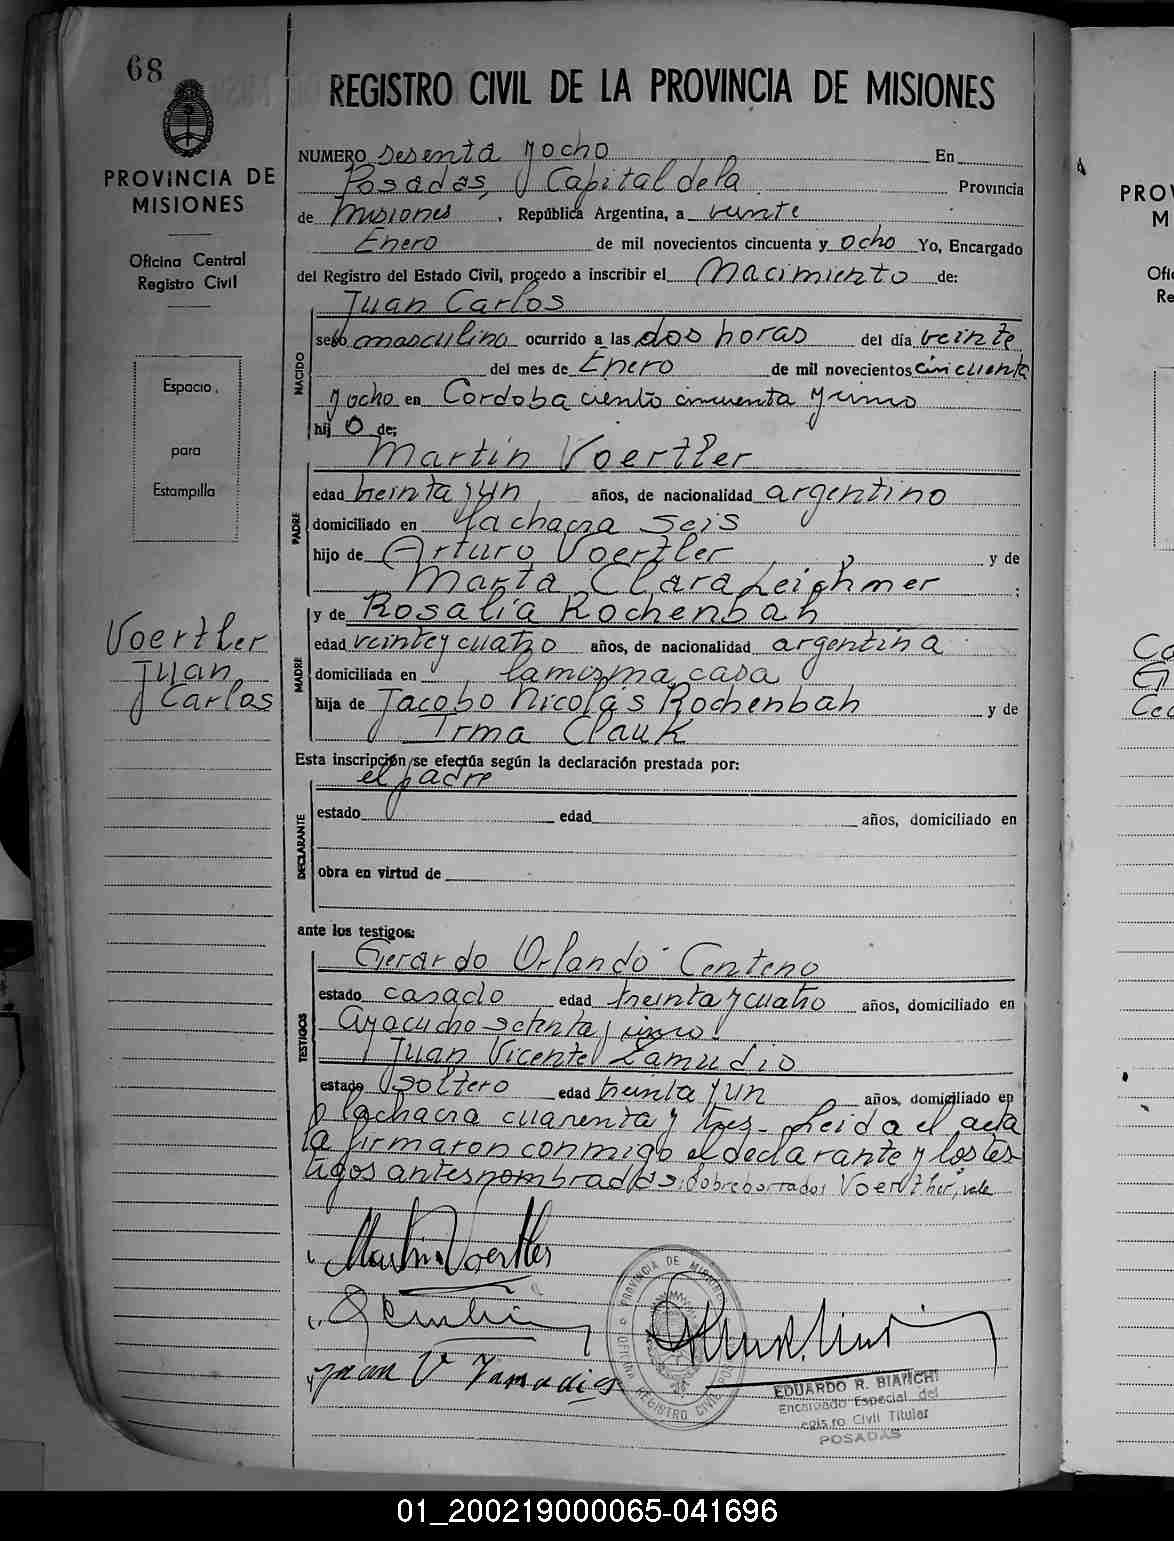 68
PROVINCIA DE
MISIONES
Oficina Central
Registro Civil
Espacio
para
Estampilla
Voertler
Juan
Carlos
REGISTRO CIVIL DE LA PROVINCIA DE MISIONES
NUMERO sesenta y ocho En
Posadas, Capital de la Provincia
de Misiones, República Argentina, a veinte
Enero de mil novecientos cincuenta y ocho Yo, Encargado
del Registro del Estado Civil, procedo a inscribir el Nacimiento de:
Juan Carlos
NACIDO
sexo masculino ocurrido a las dos horas del día veinte
del mes de Enero de mil novecientos cincuenta
y ocho en Cordoba ciento cincuenta y
hijo de:
Martin Voertler
PADRE
edad treinta y un años, de nacionalidad argentino
domiciliado en la chacra seis
hijo de Arturo Voertler y de
Marta Clara Leichmer;
y de Rosalia Rochenbah
MADRE
edad veinte y cuatro años, de nacionalidad argentina
domiciliada en la misma casa
hija de Jacobo Nicolás Rochenbah y de
Irma Clauk
Esta inscripción se efectúa según la declaración prestada por:
el padre
DECLARANTE
estado edad años, domiciliado en
obra en virtud de
ante los testigos:
Gerardo Orlando Centeno
TESTIGOS
estado casado edad treinta y cuatro años, domiciliado en
Ayacucho setenta y
Juan Vicente Zamudio
estado soltero edad treinta y un años, domiciliado en
la chacra cuarenta y tres. Leida el acta
la firmaron conmigo el declarante y los tes-
tigos antes nombrados. sobreborrados Voerther, vale
Martin Voertler
Juan V Zamudio
PROVINCIA DE MISIONES
OFICINA REGISTRO CIVIL
EDUARDO R. BIANCHI
Encargado Especial del
Registro Civil Titular
POSADAS
01_200219000065-041696